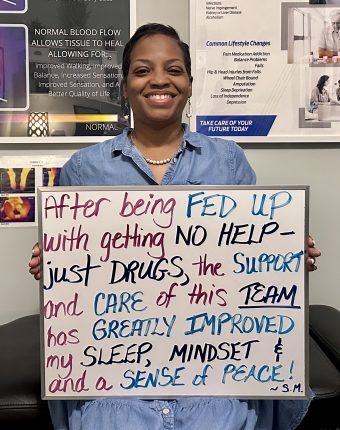 NORMAL BLOOD FLOW
ALLOWS TISSUE TO HEAL
ALLOWING FOR...
Improved Walking, Improved
Balance, Increased Sensation,
Improved Sensation, and A
Better Quality of Life
NORMAL
Infections
Nerve Impingement
Kidney or Liver Disease
Alcoholism
Common Lifestyle Changes
Pain Medication Addiction
Balance Problems
Falls
Hip & Head Injuries from Falls
Wheel Chair Bound
Amputation
Sleep Deprivation
Loss of Independence
Depression
TAKE CARE OF YOUR
FUTURE TODAY
After being FED UP
with getting NO HELP-
just DRUGS, the SUPPORT
and CARE of this TEAM
has GREATLY IMPROVED
my SLEEP, MINDSET &
and a SENSE of PEACE!
~S.M.